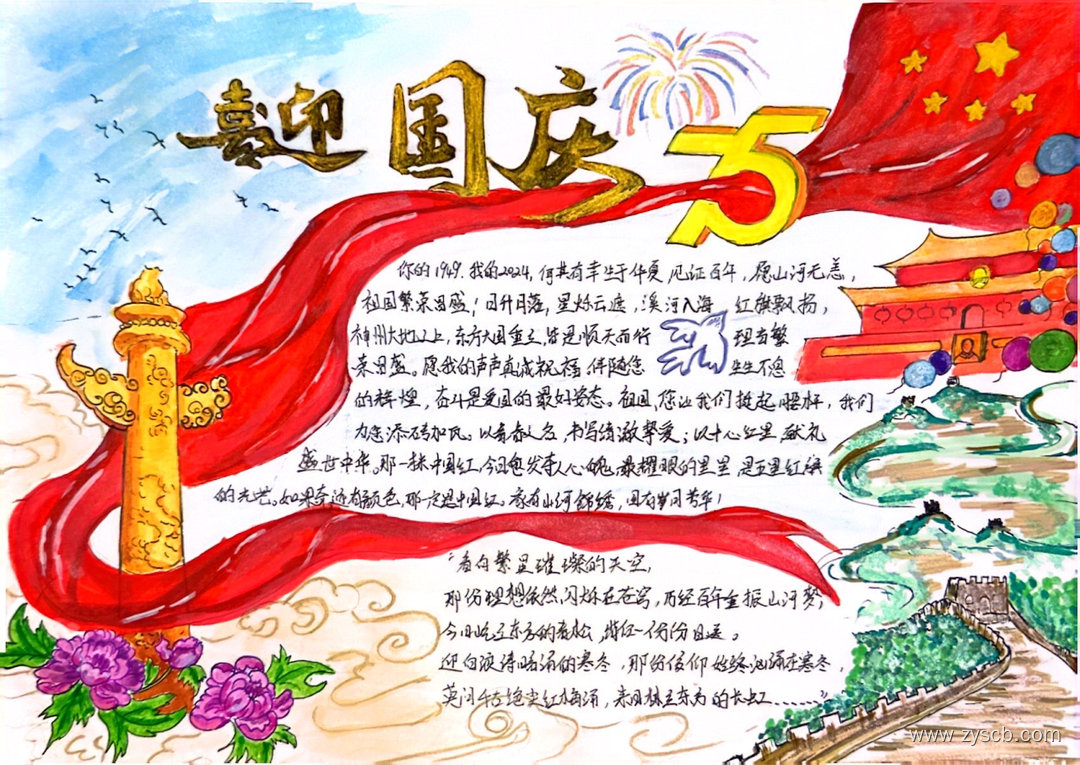 喜迎国庆
75
你的1949,我的2024,何其有幸生于华夏 见证百年,愿山河无恙,
祖国繁荣昌盛!日升月落,星烁云遮,溪河入海 红旗飘扬,
神州大地之上,东方大国重立,皆是顺天而行 理当繁
荣昌盛。愿我的声声真诚祝福 伴随您 生生不息
的辉煌,奋斗是爱国的最好姿态。祖国,您让我们挺起腰杆,我们
为您添砖加瓦。以青春之名,书写清澈挚爱;以中心红星 献礼
盛世中华。那一抹中国红,今日愈发夺人心魄 最耀眼的星星 是五星红旗
的光芒。如果奇迹有颜色,那一定是中国红。家有山河锦绣,国有岁月芳华!
“看向繁星璀璨的天空,
那份理想依然闪烁在苍穹,历经百年重振山河梦,
今日屹立东方的青松,
迎向波涛汹涌的寒冬,那份信仰始终
红梅涌,东方的长虹......”
www.zyscb.com